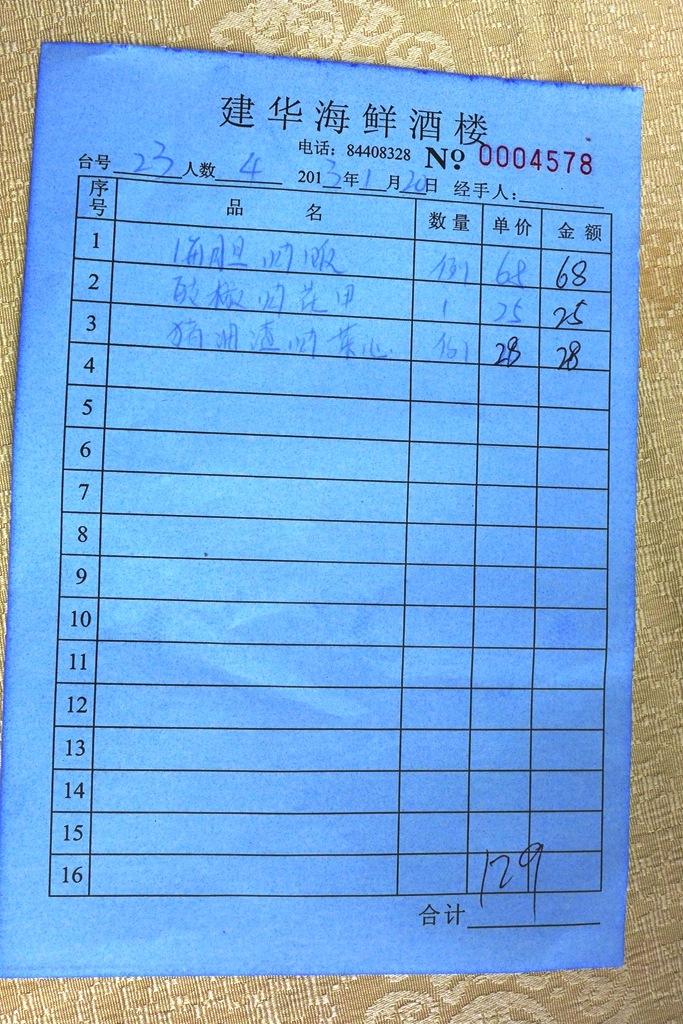 建华海鲜酒楼
电话：84408328 No 0004578
台号 23 人数 4 2013年1月20日 经手人：
序号 品名 数量 单价 金额
1 海胆炒饭 1例 68 68
2 豉椒炒花甲 1 25 25
3 猪油渣炒菜心 1例 28 28
4
5
6
7
8
9
10
11
12
13
14
15
16
合计 129